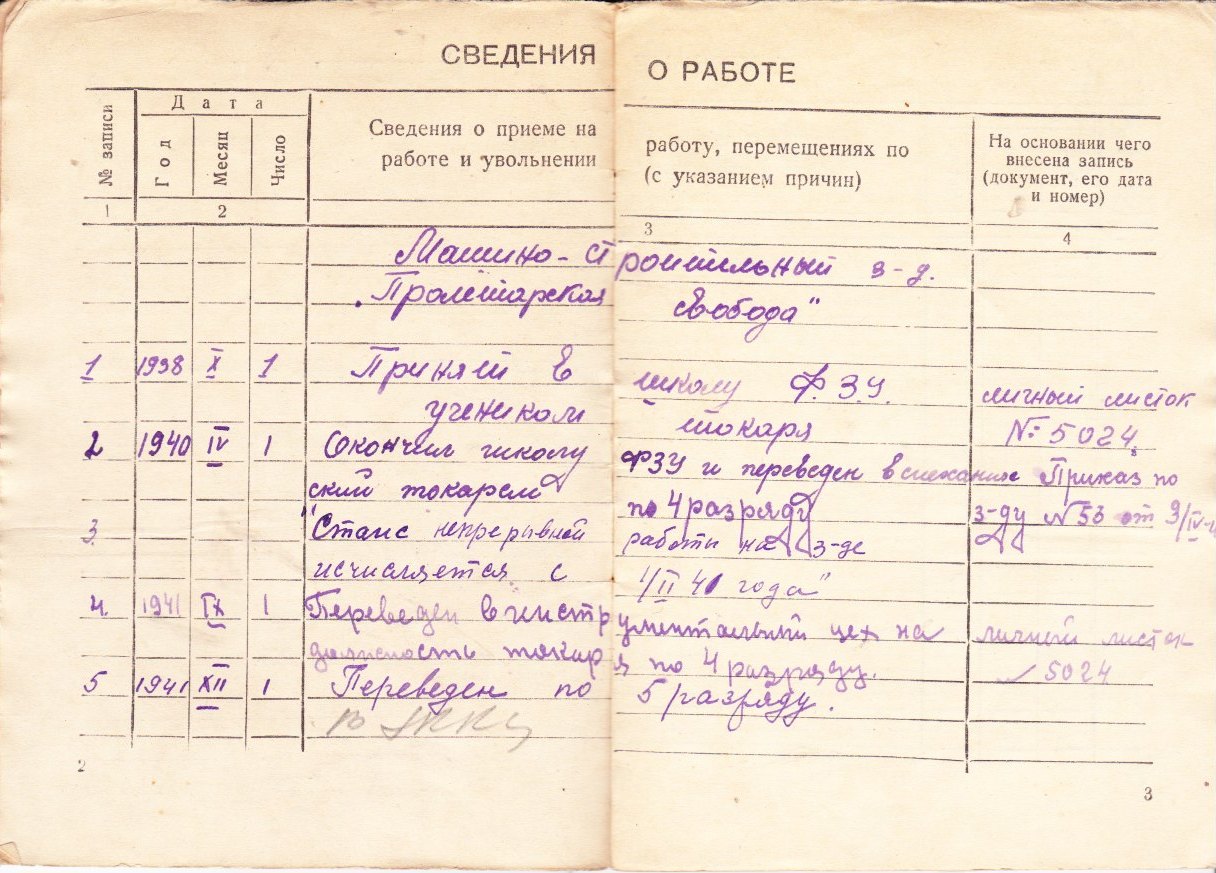 СВЕДЕНИЯ О РАБОТЕ
№ записи
Дата
Год
Месяц
Число
Сведения о приеме на работу, перемещениях по
работе и увольнении (с указанием причин)
На основании чего
внесена запись
(документ, его дата
и номер)
1 2 3 4
Машино-строительный з-д.
"Пролетарская Свобода"
1 1938 X 1 Принят в школу Ф.З.У. личный листок
учеником токаря № 5024
2 1940 IV 1 Окончил школу ФЗУ и переведен в механиче Приказ по
ский токарем по 4 разряду з-ду № 53 от 9/IV-
3 "Стаж непрерывной работы на з-де
исчисляется с 1/II 41 года"
4. 1941 IX 1 Переведен в инструментальный цех на личный листок
должность токаря по 4 разряду. 5024
5 1941 XII 1 Переведен по 5 разряду.
2
3